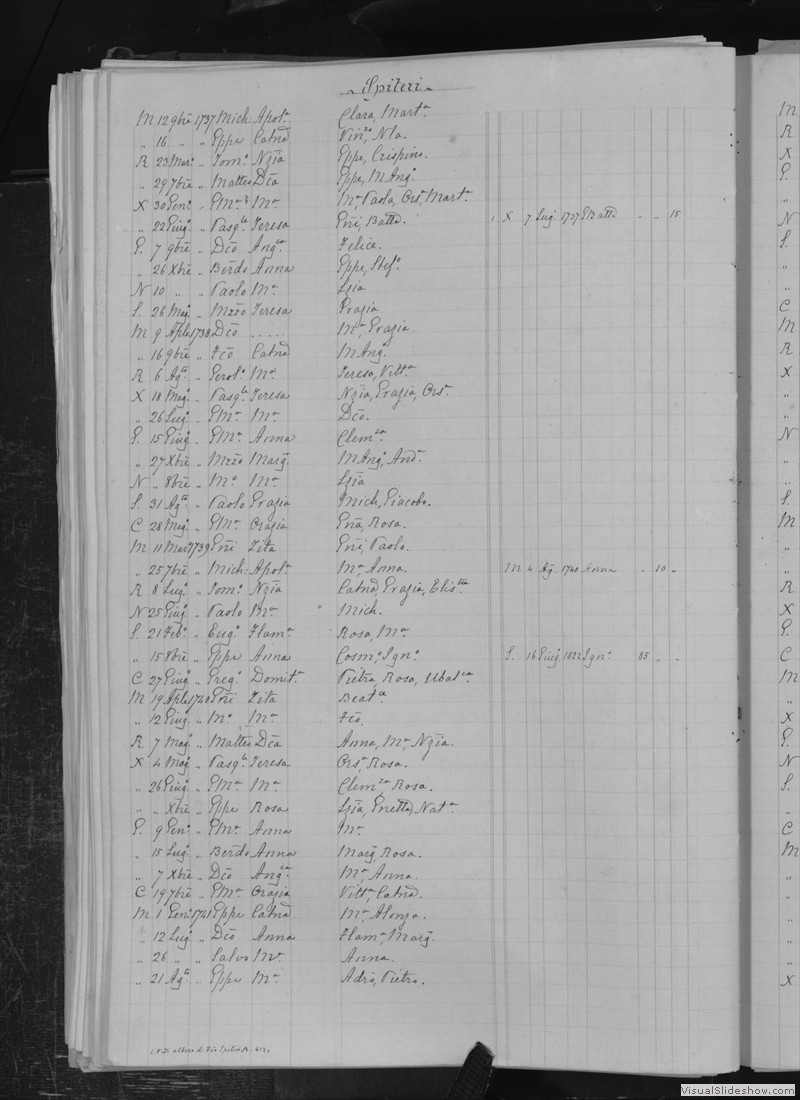 Spiteri
M 12 9bre 1737 Mich. Apol.a Clara, Mart.a
" 16 " " Gppe Catnã Vin.zo, Nta.
R 23 Mar.o " Tom.o Nzia Gppe, Crispino.
" 29 7bre " Matteo Dca Gppe, M Ang.a
X 30 Gen.o " GMa. M.a M.a Paola, Ors.a, Mart.a
" 22 Giug.o " Pasq.le Teresa Gñi, Batta. 1 X 7 Lug. 1737 GBatta " " 15
G. 7 9bre " Dco Ang.ca Felice.
" 26 Xbre " Berdo Anna Gppe, Stef.o
N 10 " " Paolo M.a Lzia
S. 26 Mag.o " Mzzo Teresa Grazia
M 9 Aple 1738 Dco ..... M.a, Grazia.
" 16 9bre " Fco Catnã M Ang.a
R 6 Ag.to " Gerol.o M.a Teresa, Vitt.a
X 18 Mag.o " Pasq.le Teresa Nzia, Grazia, Ors.a
" 26 Lug.o " GMa. M.a Dco.
G. 15 Giug.o " GMa. Anna Clem.za
" 27 Xbre " Mzzo Marg. M Ang.a, And.a
N " 8bre " M.o M.a Lzia
S. 31 Ag.to " Paolo Grazia Mich, Giacobo.
C 28 Mag.o " GMa. Orazia Gña, Rosa.
M 11 Mar. 1739 Gñi Zita Gñi, Paolo.
" 25 7bre " Mich. Apol.a M.a, Anna. M 4 Ag. 1740 Anna " 10 "
R 8 Lug.o " Tom.o Nzia Catnã, Grazia, Elis.tta
N 25 Giug.o " Paolo M.a Mich.
S. 21 Feb.o " Eug.o Flam.a Rosa, M.a
" 15 8bre " Gppe Anna Cosm.o, Ign.o S. 16 Giug. 1822 Ign.o 85 " "
C 27 Giug.o " Greg.o Domit.a Pietra, Rosa, Ubal.ca
M 19 Aple 1740 Gñi Zita Beat.ce
" 12 Giug.o " M.o M.a Fco.
R 7 Mag.o " Matteo Dca Anna, M.a, Nzia.
X 4 Mag.o " Pasq.le Teresa Ors.a, Rosa.
" 26 Giug.o " GMa. M.a Clem.za, Rosa.
" " Xbre " Gppe Rosa Lzia, Gnetta, Nat.a
G. 9 Gen.o " GMa. Anna M.a
" 15 Lug.o " Berdo Anna Marg., Rosa.
" 7 Xbre " Dco Ang.ca M.a, Anna.
C 19 7bre " GMa. Orazia Vitt.a, Catnã.
M 1 Gen.o 1741 Gppe Catnã M.a, Alonza.
" 12 Lug.o " Dco Anna Flam.a, Marg.
" 26 " " Salvo M.a Anna.
" 21 Ag.to " Gppe M.a Adro, Pietro.
M
R
X
G.
"
N
S.
"
"
C
M
R
X
"
"
N
"
"
S.
M
"
"
R
X
G.
C
M
"
X
G.
N
S.
"
C.
M
"
"
"
"
"
X
VisualSlideshow.com